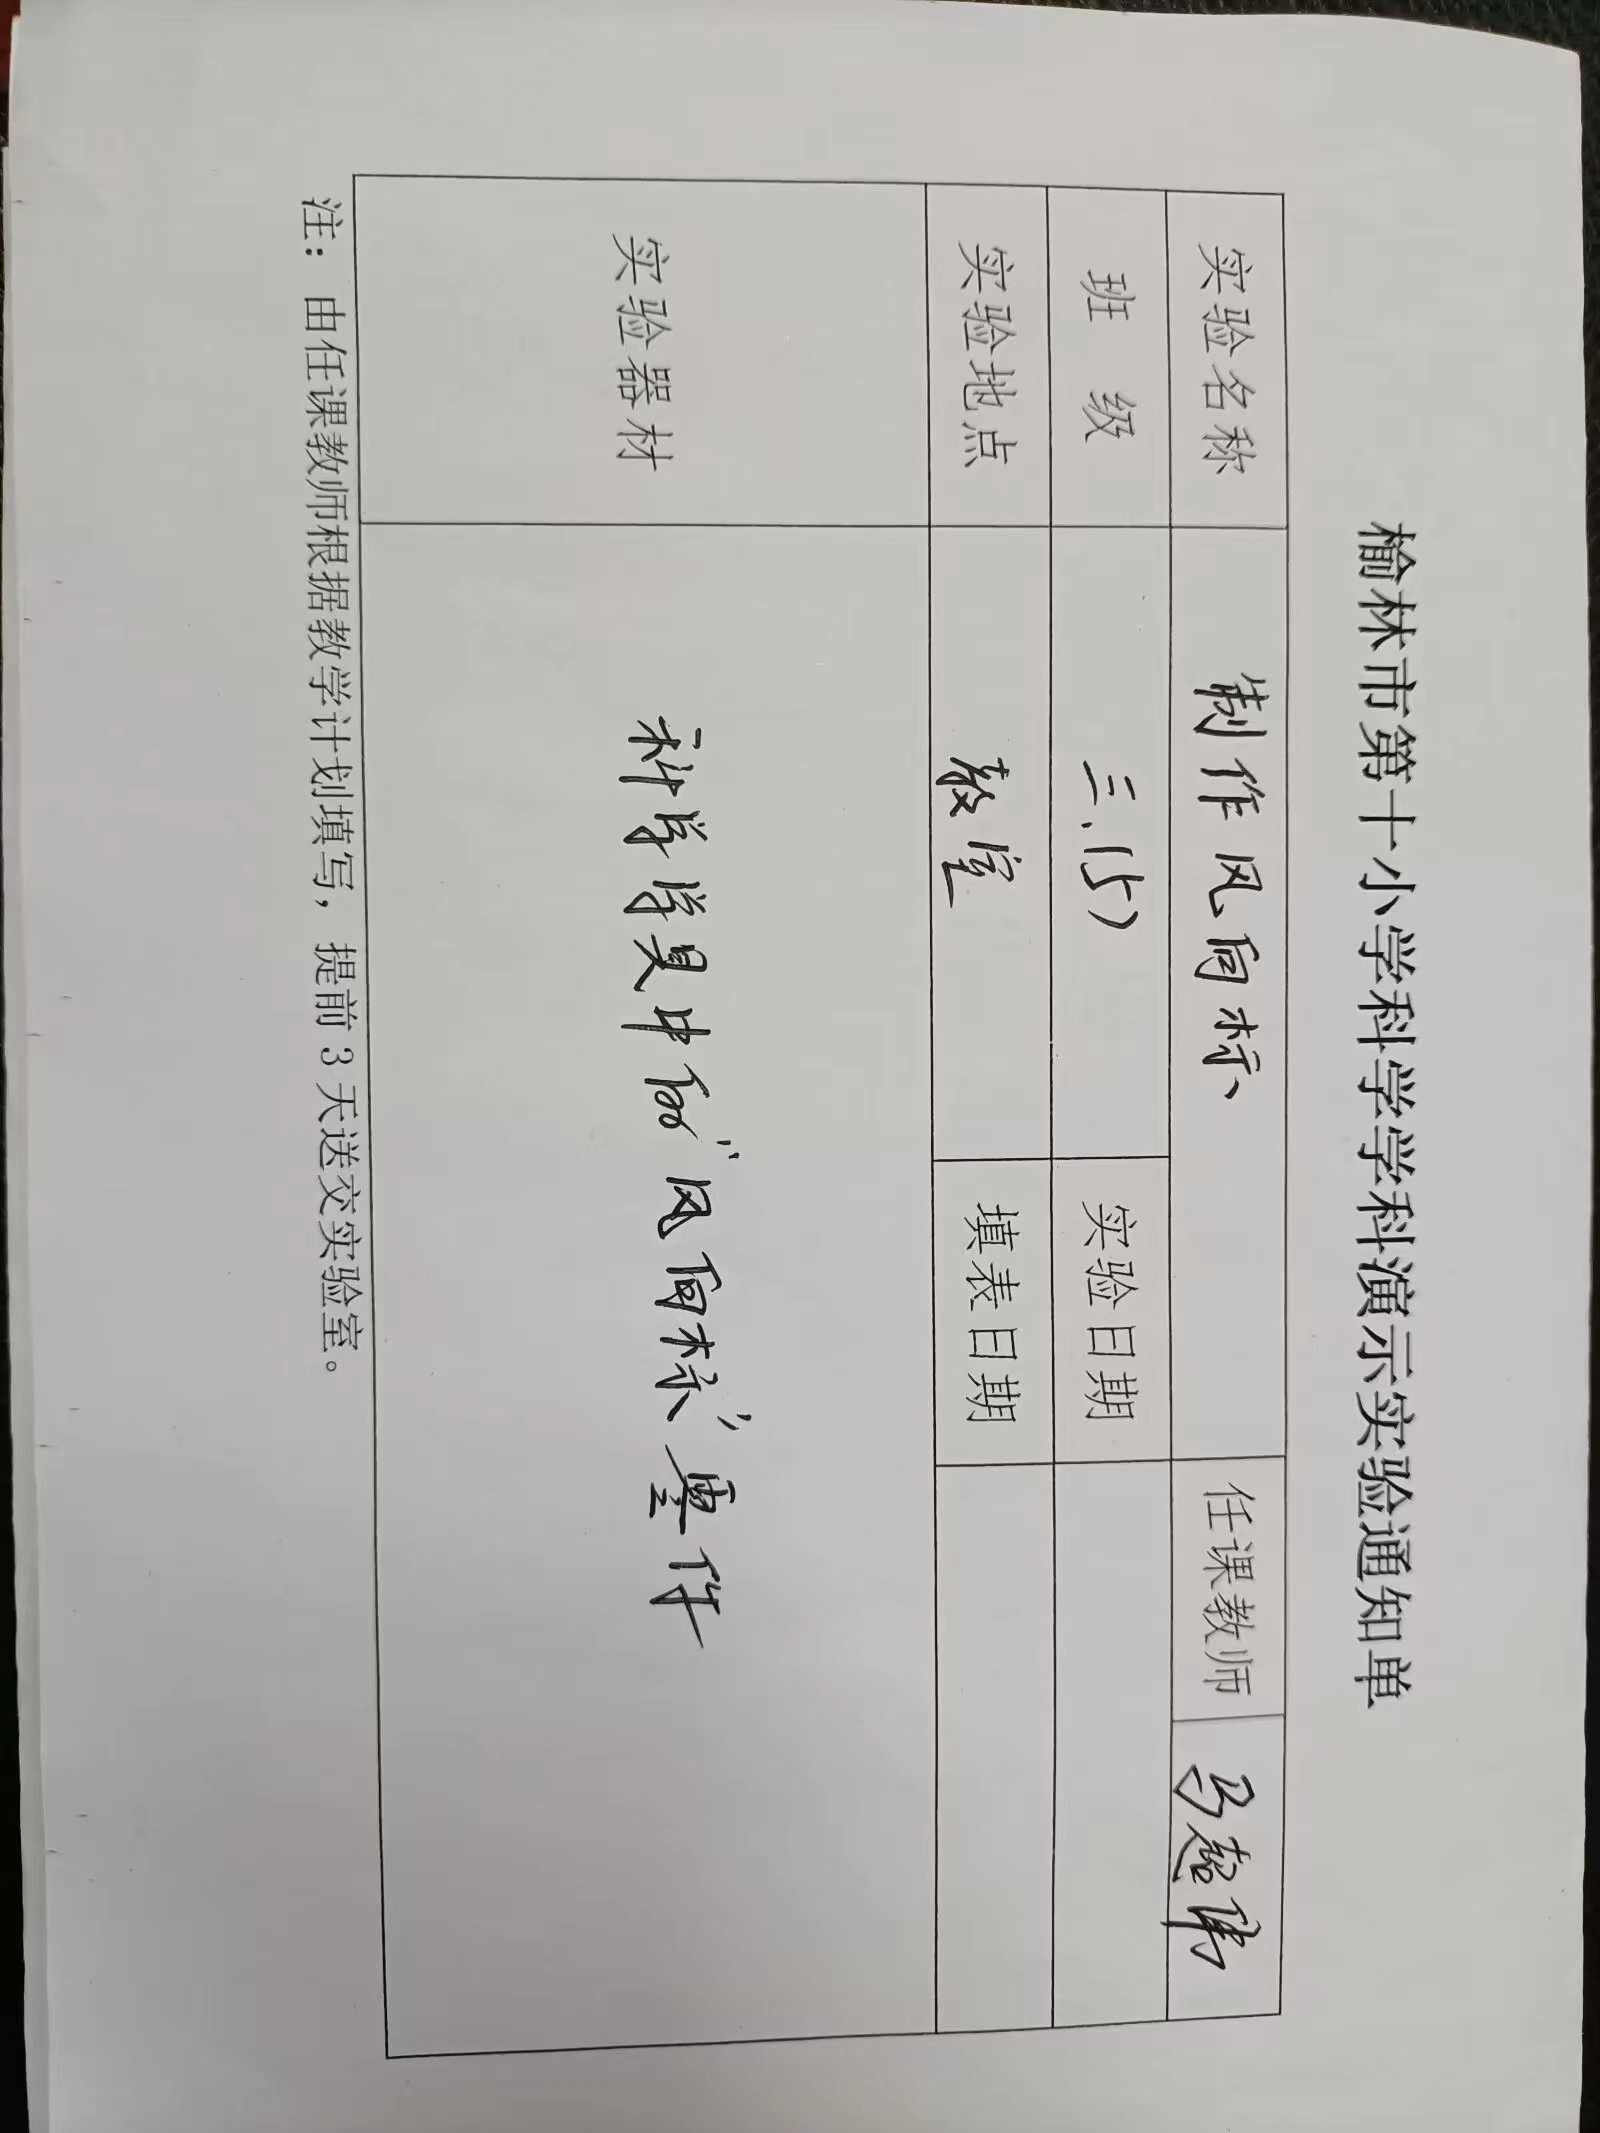 榆林市第十小学科学学科演示实验通知单
实验名称 制作风向标 任课教师 马超伟
班 级 三.(5) 实验日期
实验地点 教室 填表日期
实验器材 科学学具中的“风向标”套件
注：由任课教师根据教学计划填写，提前3天送交实验室。